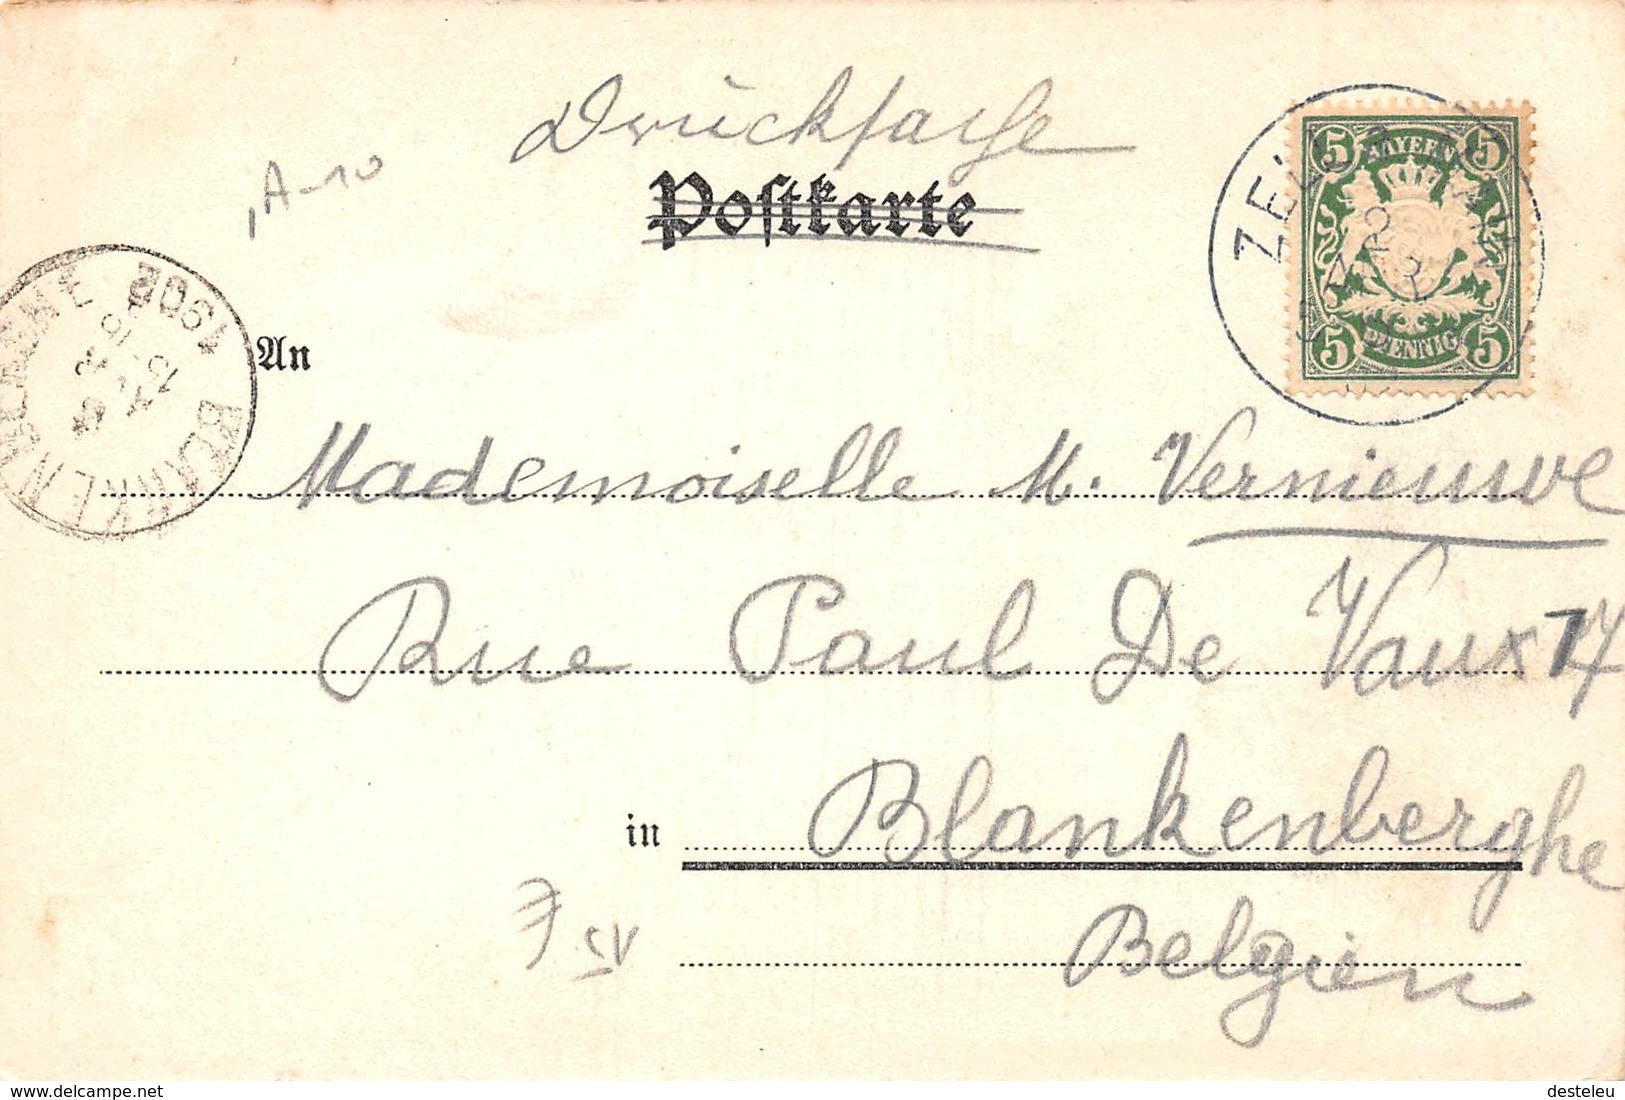 Drucksache
A-10
Postkarte
ZEIL
BAYERN
5 5
5 5
PFENNIG
BLANKENBERGHE
1902
An
Mademoiselle M. Vernieuwe
Rue Paul De Vaux 77
in Blankenberghe
Belgien
delcampe.net
desteleu